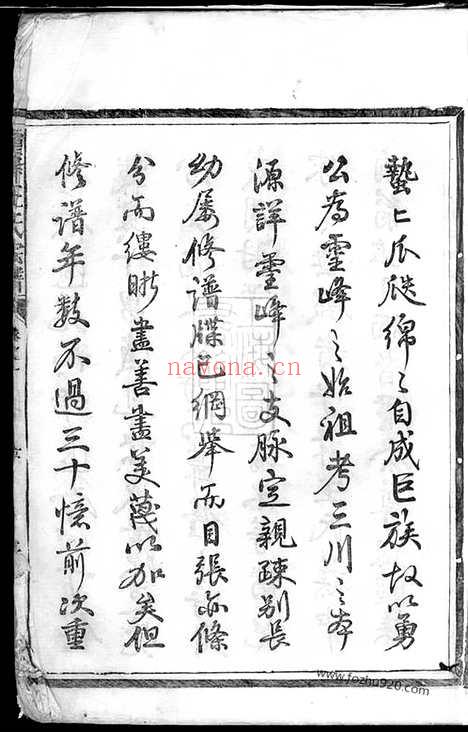 蟄〻瓜瓞綿〻自成巨族故以勇
公為靈峰之始祖考三川之本
源詳靈峰之支脉定親疎别長
幼屢修譜牒已綱舉而目張亦條
分而縷晰盡善盡美蔑以加矣但
修譜年数不過三十憶前次重
nayona.cn
www.fozhu920.com